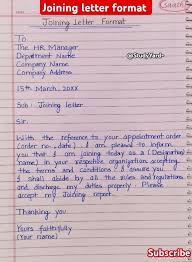 Joining letter format
Joining Letter Format
To
The HR Manager
Department Name
@StudyYard-
Company Name
Company Address
15th March, 20XX
Sub: Joining letter
Sir,
With the reference to your appointment order
(order no., date). I am pleased to inform
you that I am joining today as a (Designation/
name) in your respective organisation, accepting
the terms and conditions. I assure you
I shall abide by all the rules and regulations
and discharge my duties properly. Please
accept my Joining report.
Thanking you
Yours faithfully
(Your name)
Subscribe